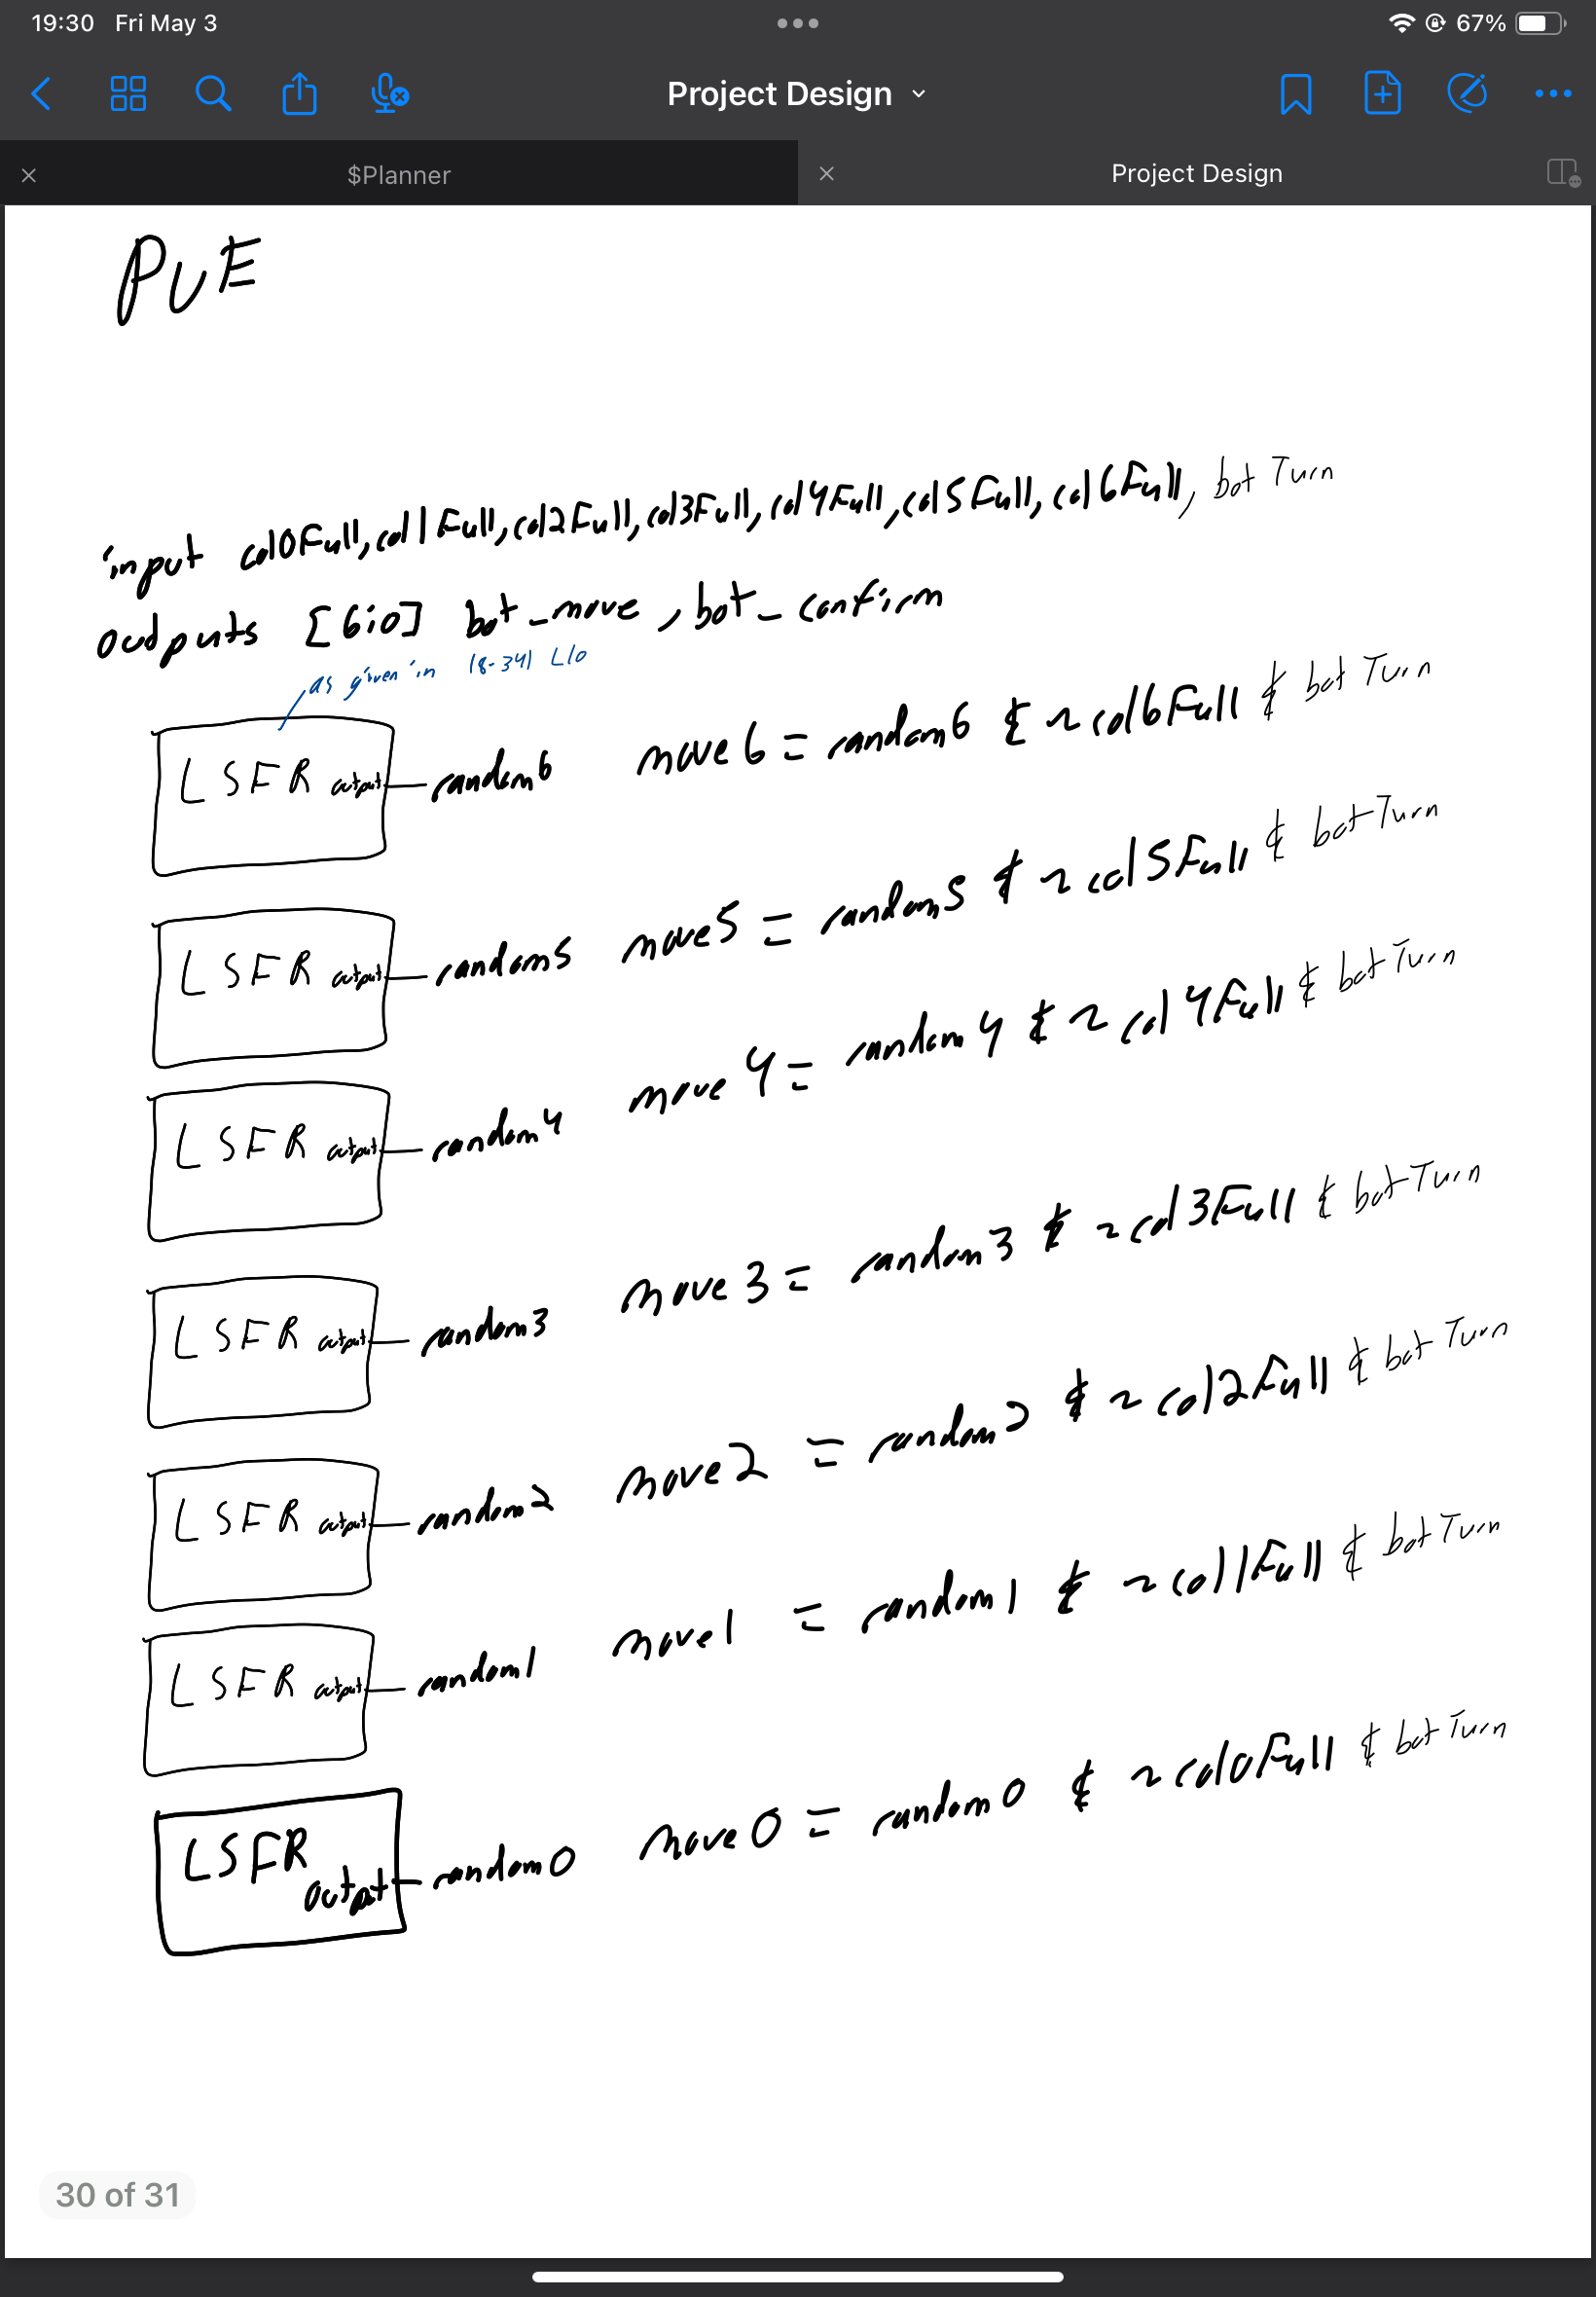 19:30 Fri May 3
67%
Project Design
$Planner
Project Design
PVE
input col0Full, col1Full, col2Full, col3Full, col4Full, col5Full, col6Full, bot Turn
outputs [6:0] bot_move, bot_confirm
as given in 18-341 L10
LSFR output random6 move6 = random6 & ~col6Full & bot Turn
LSFR output random5 move5 = random5 & ~col5Full & bot Turn
LSFR output random4 move4 = random4 & ~col4Full & bot Turn
LSFR output random3 move3 = random3 & ~col3Full & bot Turn
LSFR output random2 move2 = random2 & ~col2Full & bot Turn
LSFR output random1 move1 = random1 & ~col1Full & bot Turn
LSFR output random0 move0 = random0 & ~col0Full & bot Turn
30 of 31